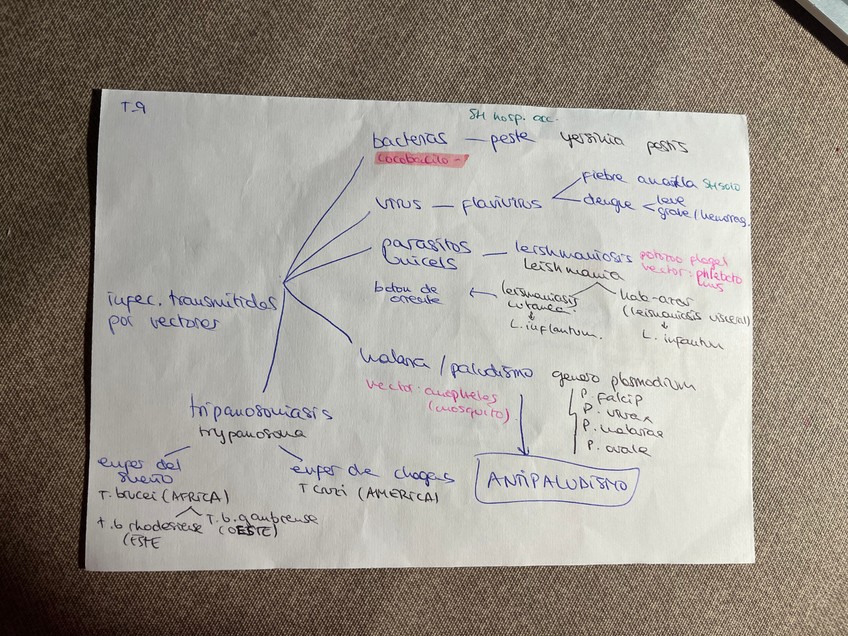 T.9
SH hosp. acc.
bacterias — peste yersinia pestis
cocobacilo -
virus — flavivirus
fiebre amarilla SH solo
dengue < leve
grave/hemorrag.
parasitos
unicels — leishmaniosis
Leishmania
protozoo flagel
vector: phleboto
mus
boton de
oriente ← leishmaniasis
cutanea
L. inflantum.
kab-azar
(leismaniosis visceral)
L. infantum
infec. transmitidas
por vectores
malaria / paludismo genero plasmodium
vector: anopheles
(mosquito)
P. falcip
P. vivax
P. malariae
P. ovale
ANTIPALUDISMO
tripanosomiasis
trypanosoma
enfer del
sueño
T. brucei (AFRICA)
T.b rhodesiense
(ESTE
T.b. gambiense
(OESTE)
enfer de chagas
T cruzi (AMERICA)